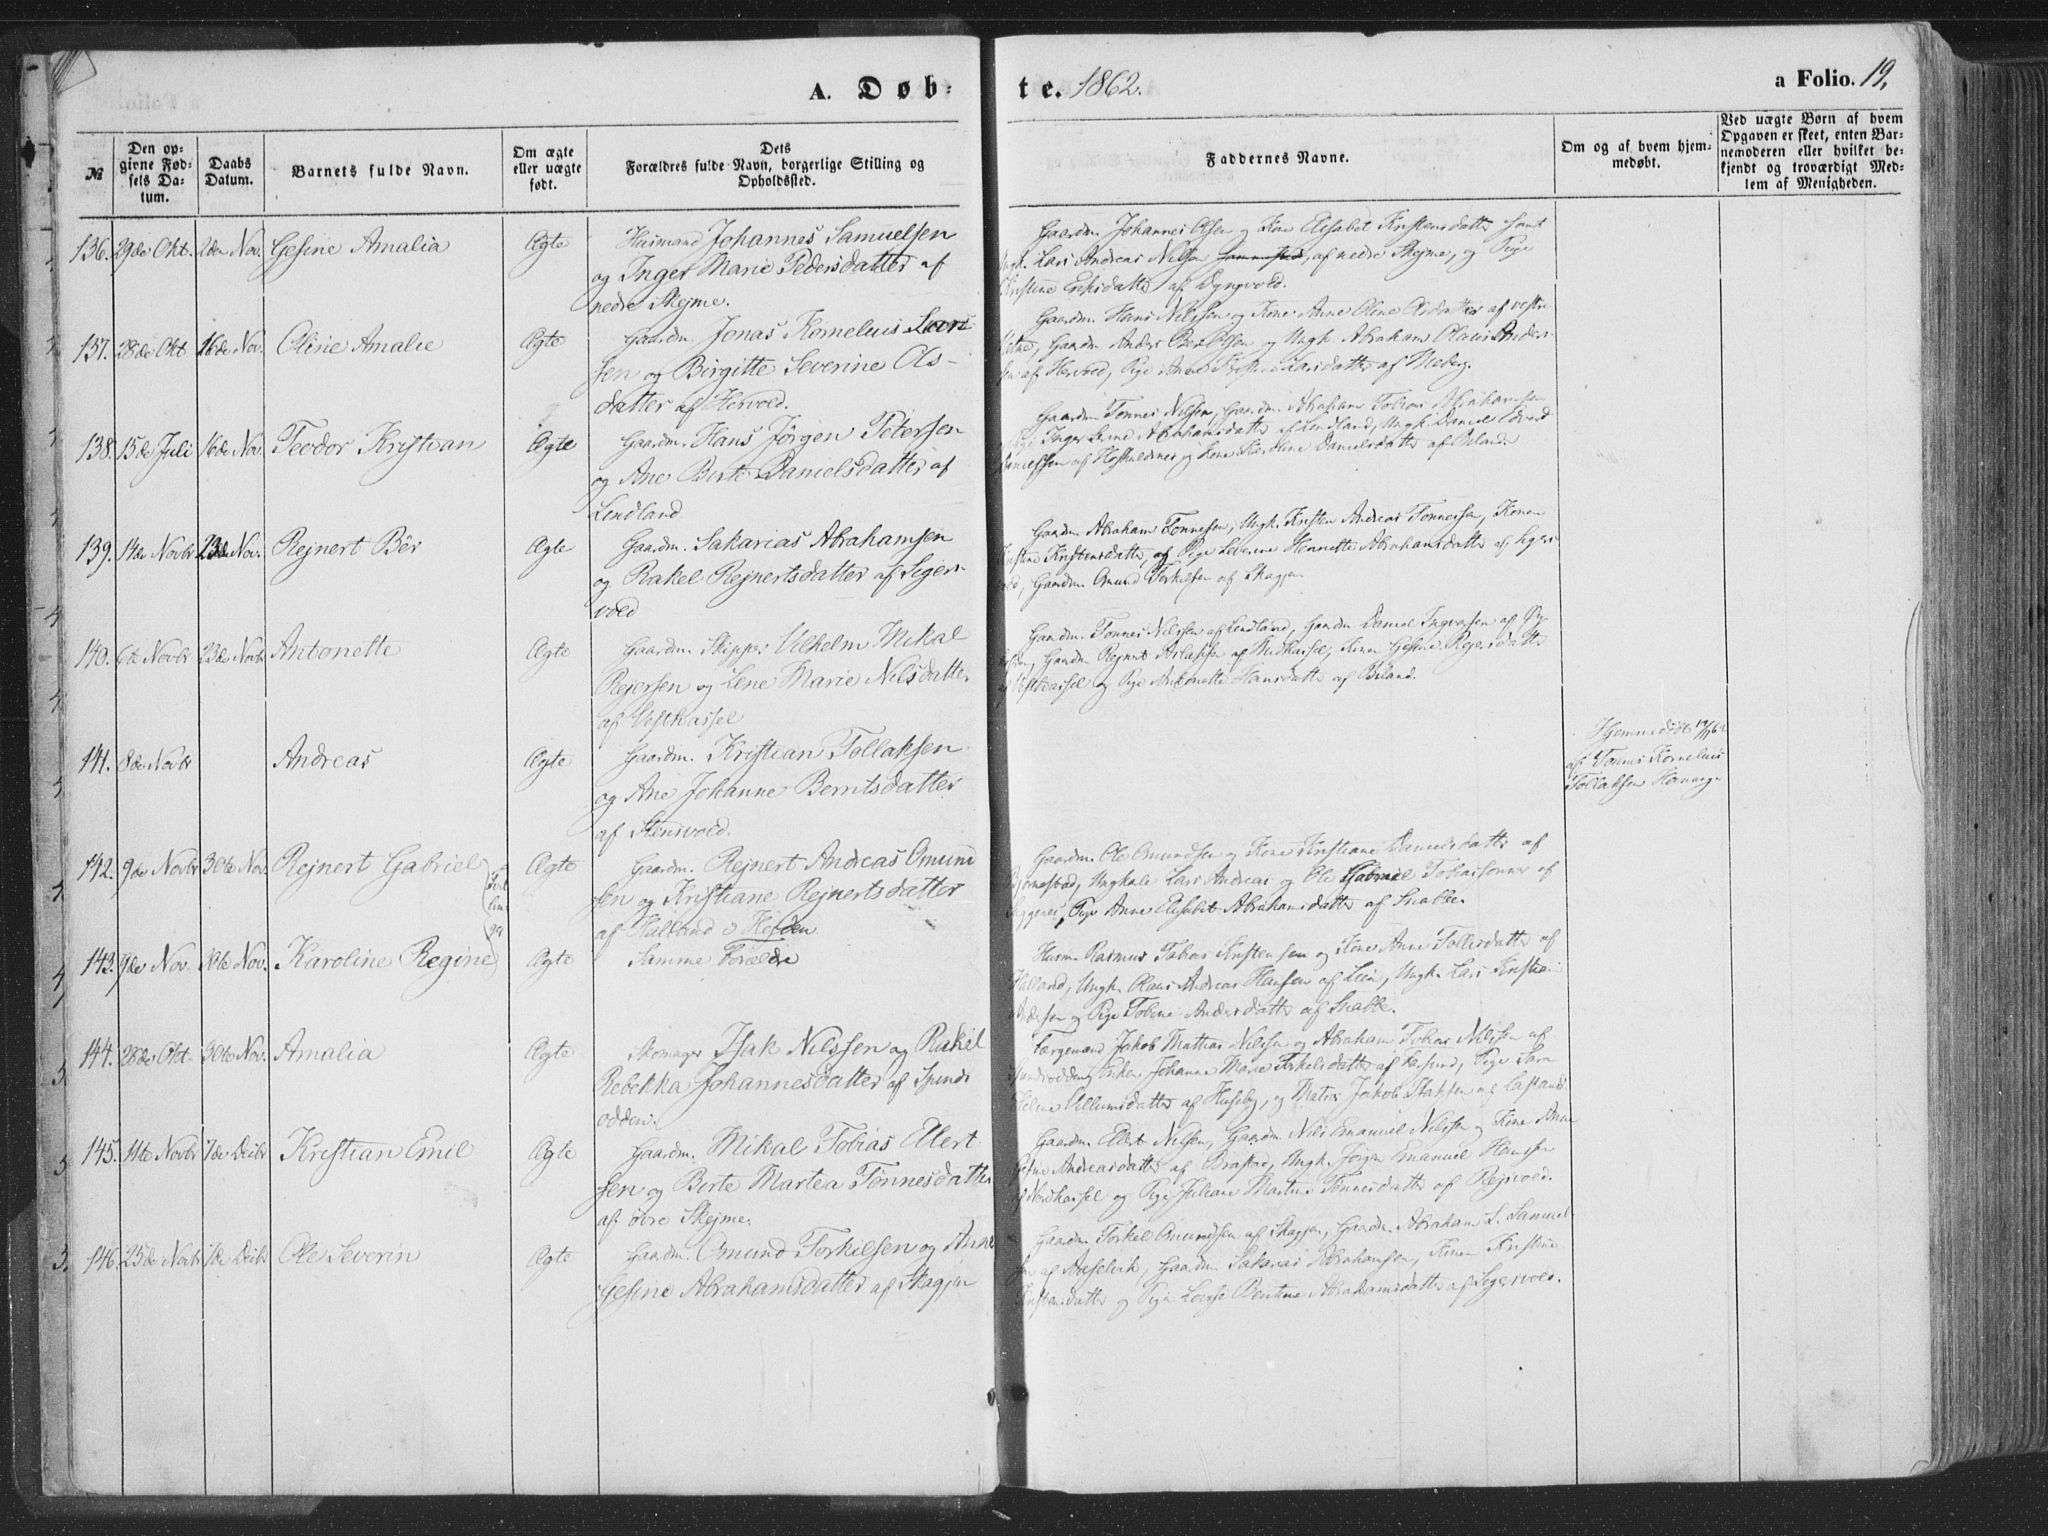 A. Døb-
te. 1862.
a Folio. 19.
№
Den op-
givne Fød-
sels Da-
tum.
Daabs
Datum.
Barnets fulde Navn.
Om ægte
eller uægte
født.
Dets
Forældres fulde Navn, borgerlige Stilling og
Opholdssted.
Faddernes Navne.
Om og af hvem hjem-
medøbt.
Ved uægte Børn af hvem
Opgaven er skeet, enten Bar-
nemoderen eller hvilket be-
kjendt og troværdigt Med-
lem af Menigheden.
136. 29de Okt. 2den Nov. Gesine Amalia Ægte Husmand Johannes Samuelsen
og Inger Marie Pedersdatter af
nedre Skejme.
Gaardm. Johannes Olsen og Kone Elisabet Kristensdatter samt
Ungk. Lars Andreas Nilsen af nedre Skejme, og Pige
Kristine Eriksdatter af Dyngvold.
137. 28de Okt 16de Nov. Oline Amalie Ægte Gaardm. Jonas Kornelius Lars
sen og Birgitte Severine Ols-
datter af Hervold.
Gaardm. Hans Nilssen og Kone Anne Oline Olsdatter af vestre
Gaardm Anders Olsen og Ungk. Abraham Olaus Anders-
sen af Hervold, Pige Anne Larsdatter af Meberg.
138. 15de Juli 16de Nov. Teodor Kristian Ægte Gaardm. Hans Jörgen Petersen
og Ane Birte Danielsdatter af
Lindland
Gaardm. Tönnes Nilsen, Gaardm. Abraham Tobias Abrahamsen
Pige Inger Lene Abrahamsdatter af Lindland, Ungk. Daniel Edvard
Danielssen af og Kone Karoline Danielsdatter af
139. 14de Novbr 23de Nov. Rejnert Bër Ægte Gaardm. Sakarias Abrahamsen
og Rakel Rejnertsdatter af Segers-
vold
Gaardm. Abraham Tönnesen, Ungk. Kristen Andreas Tönnessen, Konen
Kristine Kristensdatter, og Pige Severine Henriette Abrahamsdatter af Segers
vold, Gaardm. Omund Torkilsen af Skagjen
140. 6te Novbr 23de Novbr Antonette Ægte Gaardm. Skipper Vilhelm Mikal
Rejersen og Lene Marie Nilsdatter
af Vesthassel
Gaardm. Tönnes Nilssen af Lindland, Gaardm Daniel Ingvarsen af
Gaardm Rejnert Aslaksen af Midhassel, Konen Gesine Rejersdatter
af Vesthassel og Pige Antonette Hansdatter af Biland.
141. 8de Novbr Andreas Ægte Gaardm. Kristian Tollaksen
og Ane Johanne Berntsdatter
af Stensvold.
Hjemmedöbt
af Tönnes Kornelius
Tollaksen
142. 9de Novbr 30te Nov. Rejnert Gabriel Ægte Gaardm. Rejnert Andreas Omund
sen og Kristiane Rejnertsdatter
af Halland
Tvil
lin
ger
Gaardm. Ole Omundsen og Kone Kristiane Danielsdatter af
Bjørnestad, Ungkarle Lars Andreas og Ole Gabriel Tobiassønner af
Pige Anne Elisabet Abrahamsdatter af Snabbe.
143. 9de Nov. 30te Nov. Karoline Regine Ægte Samme Forældre
Husm. Rasmus Tobias Kristensen og Kone Anne Tollisdatter af
Halland, Ungk. Olaus Andreas Hansen af Lein, Ungk. Lars Kristian
Andersen og Pige Tobine Andersdatter af Snabbe.
144. 28de Okt. 30te Nov. Amalia Ægte Skomager Isak Nilssen og Rakel
Rebekka Johannesdatter af Spinds
odden.
Færgemænd Jakob Mathias Nilssen og Abraham Tobias Nilssen af
Spindsodden, Enken Johanne Marie Torkelsdatter af Farsund, Pige Sara
Helene Villumsdatter af Huseby, og Matros Jakob Isaksen af
145. 11te Novbr 7de Decbr Kristian Emil Ægte Gaardm. Mikal Tobias Ellert
sen og Birte Martea Tönnesdatter
af övre Skejme.
Gaardm. Ellert Nilsen, Gaardm Nils Emanuel Nilssen og Kone Anne
Gesine Andreasdatter af Brastad, Ungk. Jörgen Emanuel Hansen
af Nordhassel og Pige Juliane Martine Tönnesdatter af Rejsvold.
146. 25de Novbr 7de Decbr Ole Severin Ægte Gaardm. Omund Torkilsen og Anne
Gesine Abrahamsdatter af Skagjen
Gaardm. Torkel Omundsen af Skagjen, Gaardm. Abraham S. Samuel
sen af Gaardm Sakarias Abrahamsen, Konen Kristine
Kristensdatter og Pige Lovise Bentine Abrahamsdatter af Segersvold.